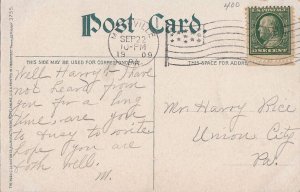 400
Post Card
SEP 22
10-PM
1909
PA.
THIS SIDE MAY BE USED FOR CORRESPONDENCE
THIS SPACE FOR ADDRESS
ONE CENT
Well Harry I have
not heard from
you for a long
time are you
to busy to write
hope you are
both well.
M.
Mr. Harry Rice
Union City
Pa.